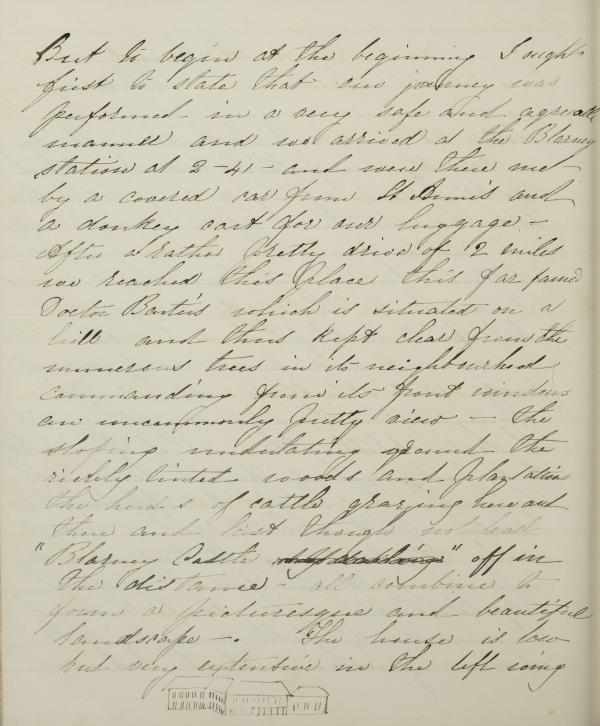 But to begin at the beginning I ought
first to state that our journey was
performed - in a very safe and agreeable
manner and we arrived at the Blarney
station at 2-4 - and were there met
by a covered car from St Anne's and
a donkey cart for our luggage -
After a rather pretty drive of 2 miles
we reached this place this far famed
Doctor Barter's which is situated on a
hill and thus kept clear from the
numerous trees in its neighbourhood
commanding from its front windows
an uncommonly pretty view - the
sloping undulating ground the
richly tinted woods and plantations
the herds of cattle grazing here and
there and last though not least
"Blarney Castle" off in
the distance - all combine to
form a picturesque and beautiful
landscape -. The house is low
but very extensive in the left wing